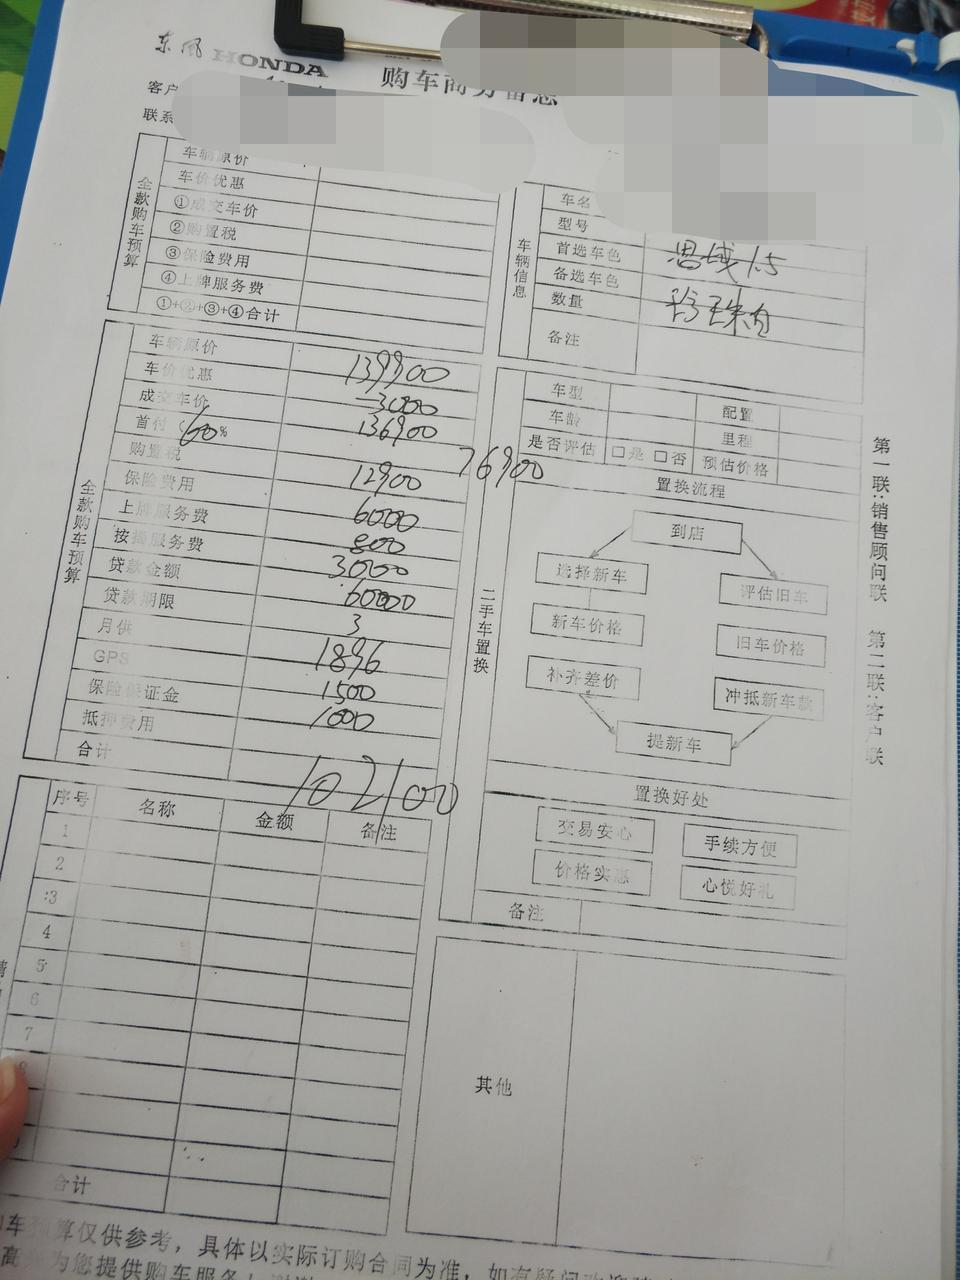 东风 HONDA 购车商务备忘
客户
联系
全款购车预算
车辆原价
车价优惠
①成交车价
②购置税
③保险费用
④上牌服务费
①+②+③+④合计
车辆信息
车名
型号
首选车色 思域1.5
备选车色
数量 珍珠白
备注
全款购车预算
车辆原价 139900
车价优惠 -3000
成交车价 136900
首付(60% 76900
购置税 12900
保险费用 6000
上牌服务费 800
按揭服务费 3000
贷款金额 60000
贷款期限 3
月供 1896
GPS 1500
保险保证金 1000
抵押费用
合计 102100
二手车置换
车型 配置
车龄 里程
是否评估 □是 □否 预估价格
置换流程
到店
选择新车 评估旧车
新车价格 旧车价格
补齐差价 冲抵新车款
提新车
置换好处
交易安心 手续方便
价格实惠 心悦好礼
备注
第一联:销售顾问联 第二联:客户联
序号 名称 金额 备注
1
2
3
4
5
6
7
8
合计
其他
车预算仅供参考，具体以实际订购合同为准，如有疑问欢迎
为您提供购车服务!